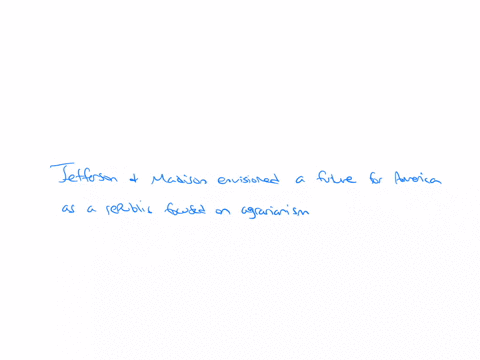 Jefferson + Madison envisioned a future for America
as a republic focused on agrarianism